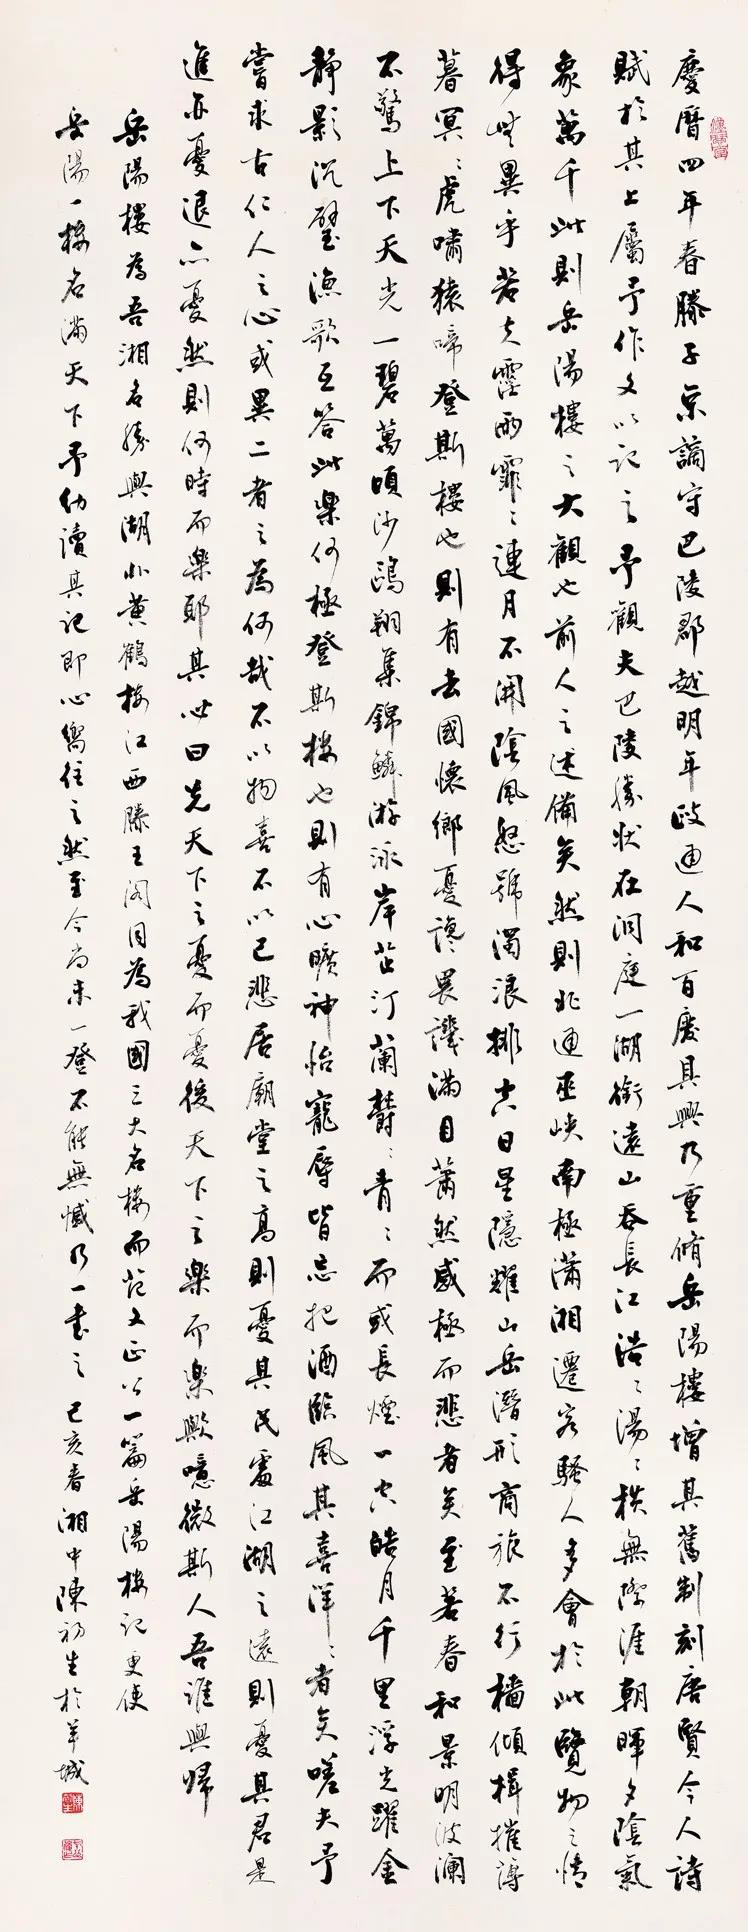 慶曆四年春滕子京謫守巴陵郡越明年政通人和百廢具興乃重脩岳陽樓增其舊制刻唐賢今人詩
賦於其上屬予作文以記之予觀夫巴陵勝狀在洞庭一湖銜遠山吞長江浩〻湯〻橫無際涯朝暉夕陰氣
象萬千此則岳陽樓之大觀也前人之述備矣然則北通巫峽南極瀟湘遷客騷人多會於此覽物之情
得無異乎若夫霪雨霏〻連月不開陰風怒號濁浪排空日星隱耀山岳潛形商旅不行檣傾楫摧薄
暮冥〻虎嘯猿啼登斯樓也則有去國懷鄉憂讒畏譏滿目蕭然感極而悲者矣至若春和景明波瀾
不驚上下天光一碧萬頃沙鷗翔集錦鱗游泳岸芷汀蘭鬱〻青〻而或長煙一空皓月千里浮光躍金
靜影沉璧漁歌互答此樂何極登斯樓也則有心曠神怡寵辱皆忘把酒臨風其喜洋〻者矣嗟夫予
嘗求古仁人之心或異二者之為何哉不以物喜不以己悲居廟堂之高則憂其民處江湖之遠則憂其君是
進亦憂退亦憂然則何時而樂耶其必曰先天下之憂而憂後天下之樂而樂歟噫微斯人吾誰與歸
岳陽樓為吾湘名勝與湖北黃鶴樓江西滕王閣同為我國三大名樓而范文正公一篇岳陽樓記更使
岳陽一樓名滿天下予幼讀其記即心嚮往之然至今尚未一登不能無憾乃一書之 己亥春湘中陳初生於羊城